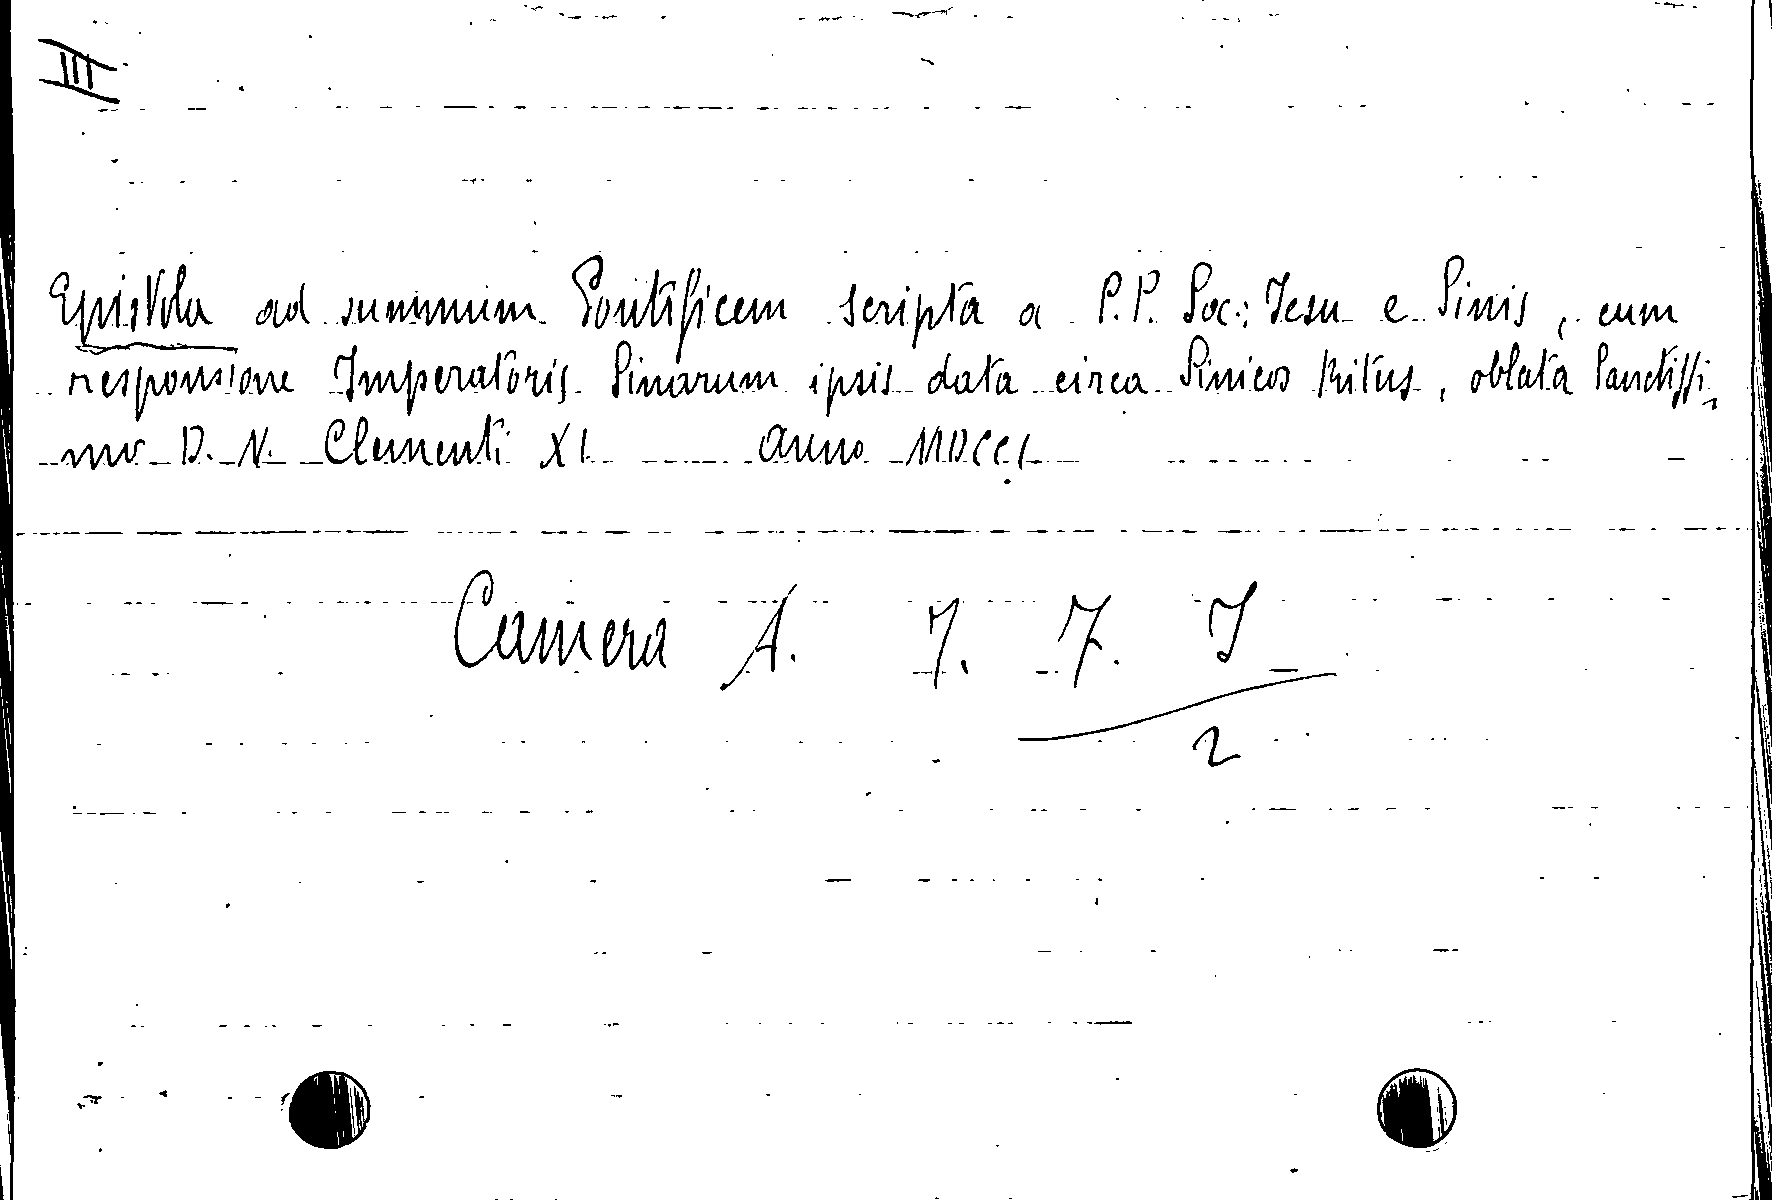 III
Epistola ad summum Pontificem scripta a P.P. Soc: Iesu e Sinis, cum
responsione Imperatoris Sinarum ipsis data circa Sinicos Ritus, oblata Sanctissi-
mo D. N. Clementi XI anno MDCCI
Camera A. 7. 7. J
2